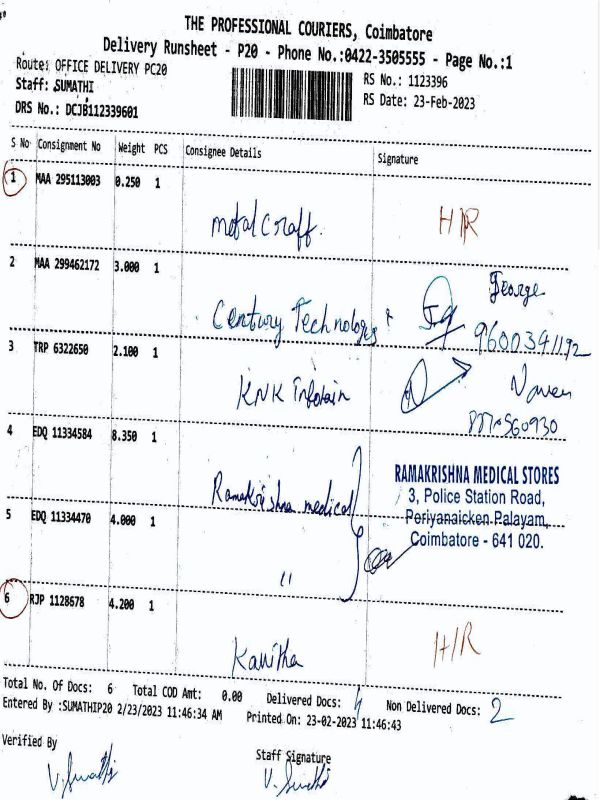 THE PROFESSIONAL COURIERS, Coimbatore
Delivery Runsheet - P20 - Phone No.:0422-3505555 - Page No.:1
Route: OFFICE DELIVERY PC20
RS No.: 1123396
Staff: SUMATHI
RS Date: 23-Feb-2023
DRS No.: DCJB112339601
S No Consignment No Weight PCS Consignee Details Signature
1 MAA 295113003 0.250 1
Metal Craff. H/R
2 MAA 299462172 3.000 1
George
Century Technology
9600341192
3 TRP 6322650 2.100 1
KNK Infotain
4 EDQ 11334584 8.350 1
RAMAKRISHNA MEDICAL STORES
3, Police Station Road,
Periyanaicken Palayam,
Coimbatore - 641 020.
Ramakrishna medical
5 EDQ 11334470 4.000 1
"
6 RJP 1128678 4.200 1
Kavitha H/R
Total No. Of Docs: 6 Total COD Amt: 0.00 Delivered Docs: 4 Non Delivered Docs: 2
Entered By :SUMATHIP20 2/23/2023 11:46:34 AM Printed On: 23-02-2023 11:46:43
Verified By Staff Signature